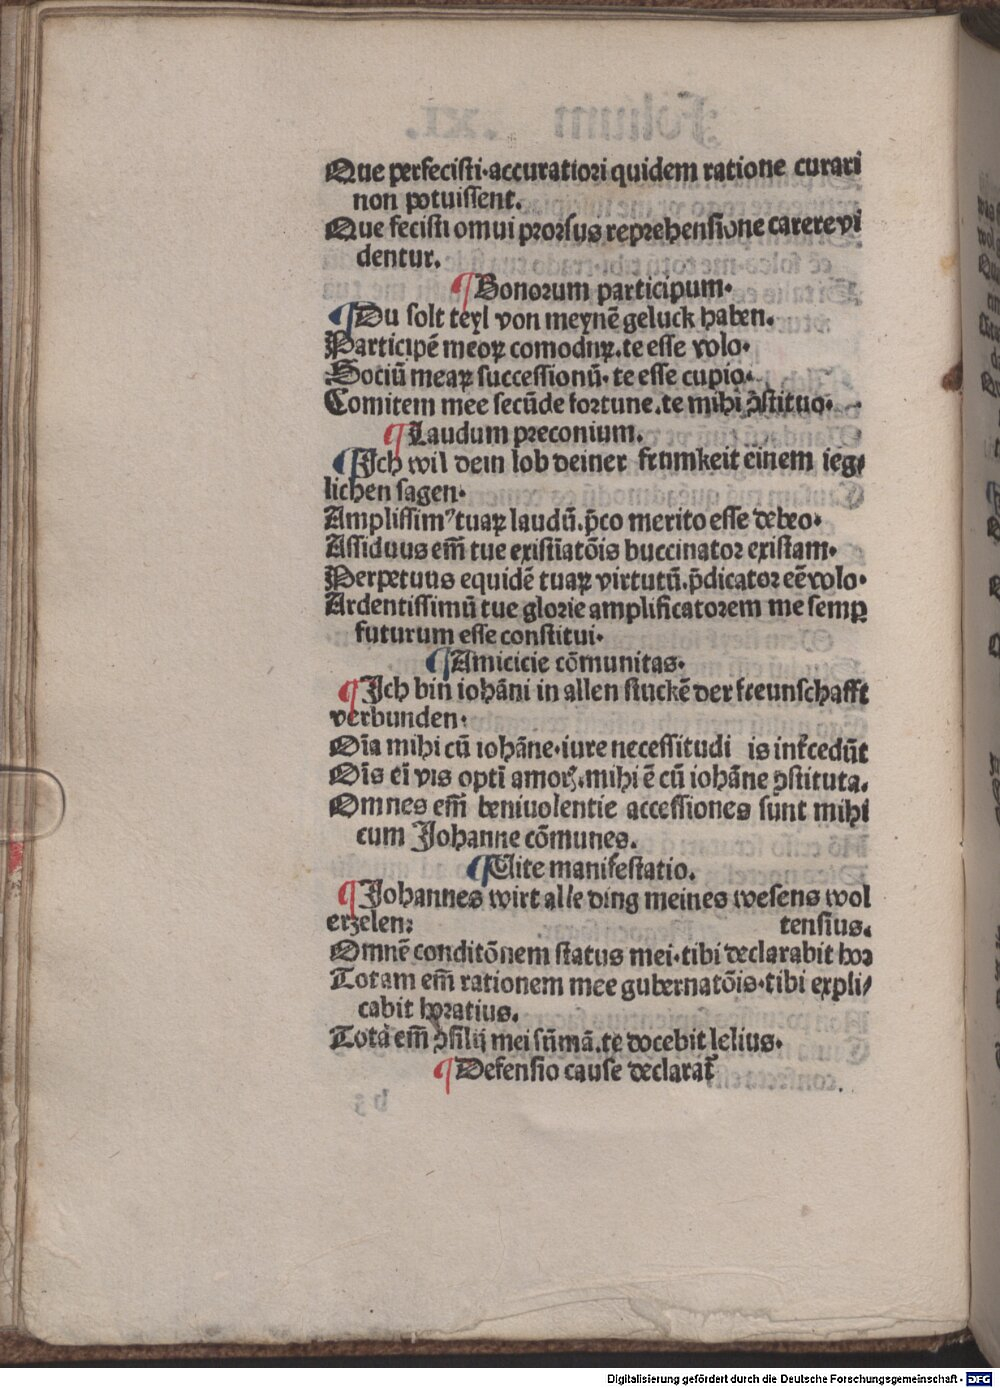 Que perfecisti·accuratiori quidem ratione curari
non potuissent.
Que fecisti omui prorsus reprehensione carere vi
dentur.
¶Bonorum participum·
¶Du solt teyl von meynē geluck haben.
Participē meoꝝ comodnꝝ.te esse volo·
Sociū meaꝝ successionū·te esse cupio·
Comitem mee secūde fortune.te mihi ꝯstituo·
¶Laudum preconium.
¶Ich wil dein lob deiner frumkeit einem ieg⸗
lichen sagen·
Amplissimꝰ tuaꝝ laudū.p̄co merito esse debeo·
Assiduus em̄ tue existīatōis buccinator existam·
Perpetuus equidē tuaꝝ virtutū.p̄dicator eē volo·
Ardentissimū tue glorie amplificatorem me semꝑ
futurum esse constitui·
¶Amicicie cōmunitas·
¶Ich bin iohāni in allen stuckē der freunschafft
verbunden·
Oīa mihi cū iohāne·iure necessitudi is int̄cedūt
Oīs em̄ vis optī amorꝭ.mihi ē cū iohāne ꝯstituta.
Omnes em̄ beniuolentie accessiones sunt mihi
cum Johanne cōmunes.
¶Uite manifestatio.
¶Johannes wirt alle ding meines wesens wol
erzelen: tensius.
Omnē conditōnem status mei·tibi declarabit hor
Totam em̄ rationem mee gubernatōis·tibi expli⸗
cabit horatius.
Totā em̄ ꝯsilij mei sūmā.te docebit lelius·
¶Defensio cause declarat᷑
Digitalisierung gefördert durch die Deutsche Forschungsgemeinschaft - DFG